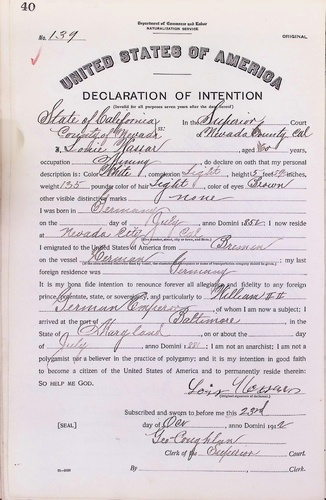 40
Department of Commerce and Labor
NATURALIZATION SERVICE
No. 139 ORIGINAL
UNITED STATES OF AMERICA
DECLARATION OF INTENTION
(Invalid for all purposes seven years after the date hereof)
State of California In the Superior Court
County of Nevada ss: of Nevada County, Cal
I, aged years,
occupation Mining, do declare on oath that my personal
description is: Color White, complexion light, height 5 feet inches,
weight 135 pounds, color of hair light, color of eyes Brown
other visible distinctive marks none
I was born in Germany
on the day of July, anno Domini 1852; I now reside
at Nevada City, Cal
I emigrated to the United States of America from Bremen
on the vessel German; my last
foreign residence was Germany
It is my bona fide intention to renounce forever all allegiance and fidelity to any foreign
prince, potentate, state, or sovereignty, and particularly to William II
German Emperor, of whom I am now a subject; I
arrived at the port of Baltimore, in the
State of Maryland on or about the day
of July, anno Domini 1881; I am not an anarchist; I am not a
polygamist nor a believer in the practice of polygamy; and it is my intention in good faith
to become a citizen of the United States of America and to permanently reside therein:
SO HELP ME GOD.
(Original signature of declarant.)
Subscribed and sworn to before me this 23rd
[SEAL] day of Dec, anno Domini 1912
Geo Coughlan
Clerk of the Superior Court.
By, Clerk.